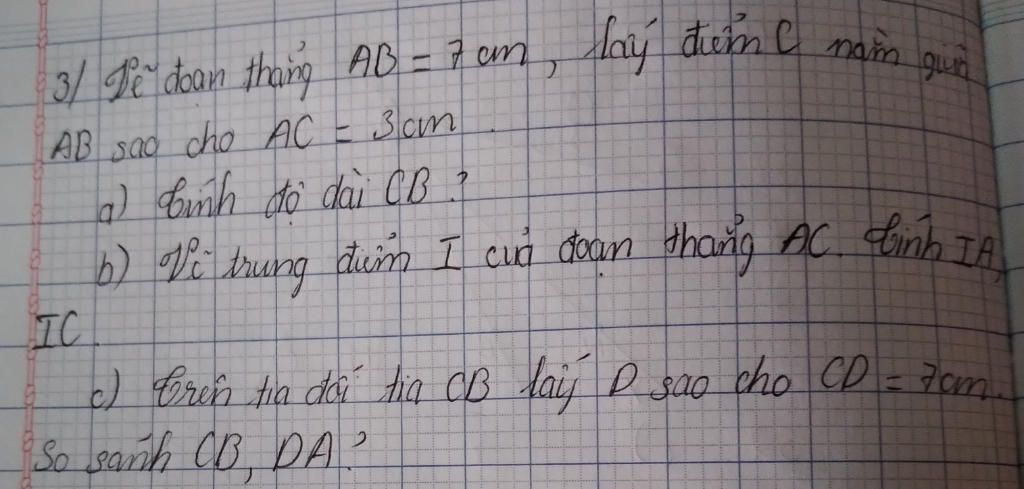 3/ Vẽ đoạn thẳng AB = 7 cm, lấy điểm C nằm giữa
AB sao cho AC = 3cm.
a) Tính độ dài CB?
b) Vẽ trung điểm I của đoạn thẳng AC. Tính IA,
IC.
c) Trên tia đối tia CB lấy D sao cho CD = 7cm.
So sánh CB, DA?